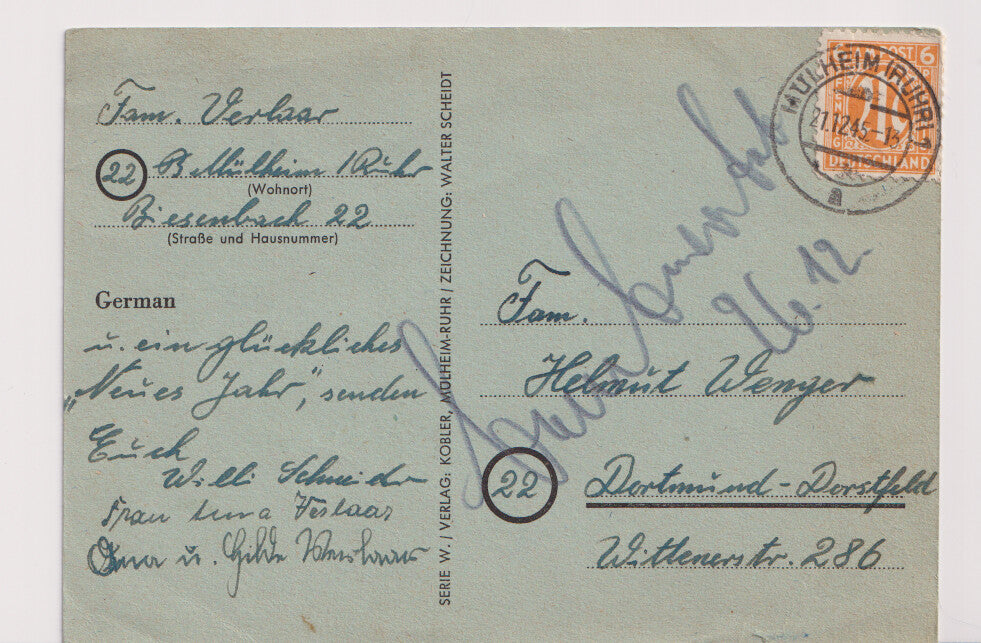 Fam. Verlaar
22 Mülheim / Ruhr
(Wohnort)
Biesenbach 22
(Straße und Hausnummer)
German
u. ein glückliches
"Neues Jahr", senden
Euch
Willi Schneider
Frau Verlaar
Oma u. Hilde Verlaar
SERIE W. / VERLAG: KOBLER, MÜLHEIM-RUHR / ZEICHNUNG: WALTER SCHEIDT
6
DEUTSCHLAND
MÜLHEIM (RUHR) 1
21.12.45-13
a
26.12.
Fam.
Helmut Wenger
22 Dortmund-Dorstfeld
Wittenerstr. 286